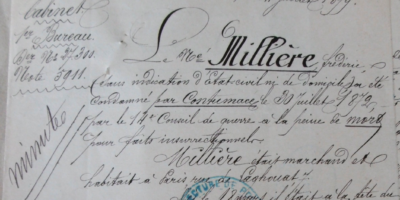 Cabinet
1er Bureau
Don No 27311
Note 3911.
minute
Le Me Millière, frédéric
(sans indication d'Etat civil ni de domicile) a été
condamné par Contumace le 30 juillet 1872,
par le 19e Conseil de guerre à la peine de mort
pour faits insurrectionnels
Millière était marchand et
habitait à Paris rue de Laghouat 7.
CTURE DE PO
il était à la tête du